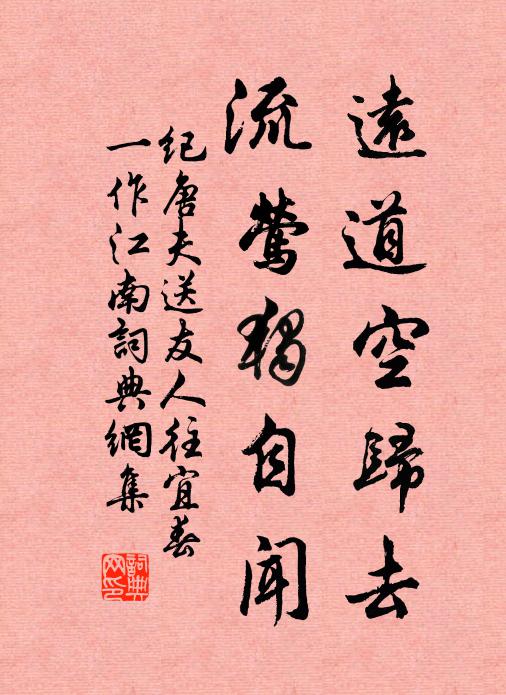 遠道空歸去
流鶯獨自聞
紀唐夫送友人往宜春
一作江南詞典網集
詞典
网印